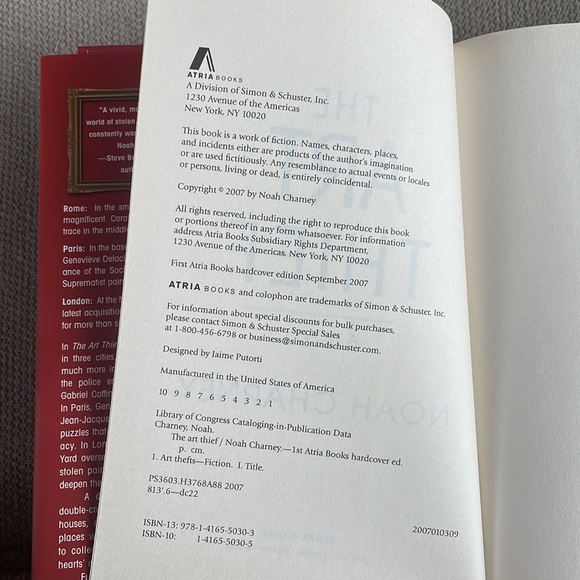 "A vivid,
world of stolen
constantly
Noah
—Steve
Rome: In the
magnificent
trace in the
Paris: In the
Geneviève
ance of the
Suprematist
London: At the
latest
for more than
In The Art
in three cities,
much more
the police
Gabriel
In Paris,
Jean-Jacque
puzzles that
acy. In
Yard
stolen
deepen the
A
double-
houses,
places
to
hearts'
ATRIA BOOKS
A Division of Simon & Schuster, Inc.
1230 Avenue of the Americas
New York, NY 10020
This book is a work of fiction. Names, characters, places,
and incidents either are products of the author's imagination
or are used fictitiously. Any resemblance to actual events or locales
or persons, living or dead, is entirely coincidental.
Copyright © 2007 by Noah Charney
All rights reserved, including the right to reproduce this book
or portions thereof in any form whatsoever. For information
address Atria Books Subsidiary Rights Department,
1230 Avenue of the Americas, New York, NY 10020
First Atria Books hardcover edition September 2007
ATRIA BOOKS and colophon are trademarks of Simon & Schuster, Inc.
For information about special discounts for bulk purchases,
please contact Simon & Schuster Special Sales
at 1-800-456-6798 or business@simonandschuster.com.
Designed by Jaime Putorti
Manufactured in the United States of America
10 9 8 7 6 5 4 3 2 1
Library of Congress Cataloging-in-Publication Data
Charney, Noah.
The art thief / Noah Charney.—1st Atria Books hardcover ed.
p. cm.
1. Art thefts—Fiction. I. Title.
PS3603.H3768A88 2007
813'.6—dc22
2007010309
ISBN-13: 978-1-4165-5030-3
ISBN-10: 1-4165-5030-5